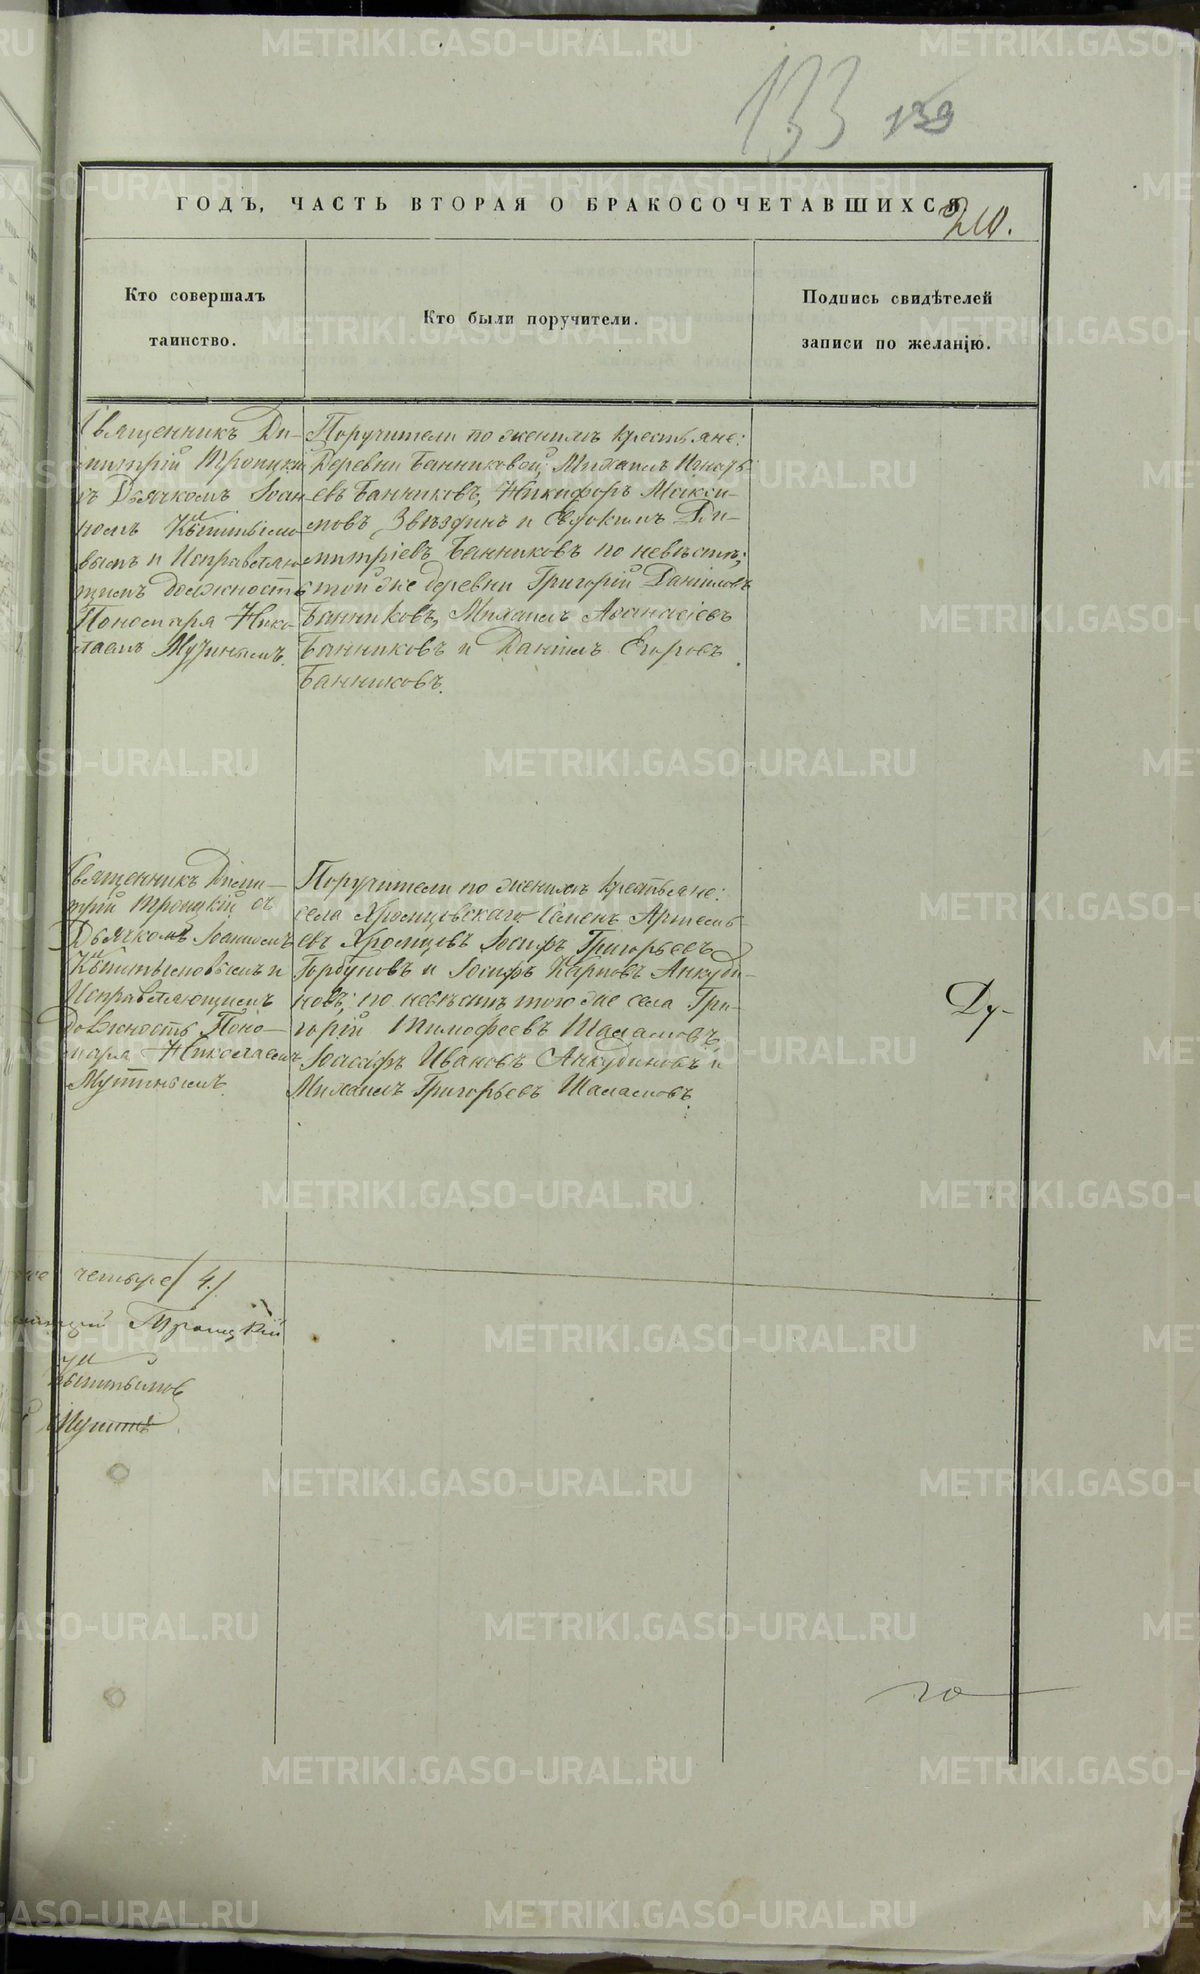 133 139
ГОДЪ, ЧАСТЬ ВТОРАЯ О БРАКОСОЧЕТАВШИХСЯ
210.
Кто совершалъ
таинство.
Кто были поручители.
Подпись свидѣтелей
записи по желанію.
Священникъ Ди-
митрій Троицкій
съ Дьячкомъ Іоан-
номъ
вымъ и Исправляю-
щимъ должность
Пономаря Нико-
лаемъ
Поручители по женихѣ крестьяне:
Деревни Банниковой; Михаилъ Игнать-
евъ Банниковъ, Никифоръ Макси-
мовъ Звѣздинъ и Евдокимъ Ди-
митріевъ Банниковъ по невѣстѣ;
той же деревни Григорій Даніиловъ
Банниковъ, Михаилъ Аѳанасіевъ
Банниковъ и Даніилъ Егоровъ
Банниковъ.
Священникъ Дими-
трій Троицкій съ
Дьячкомъ Іоанномъ
и
Исправляющимъ
Должность Поно-
маря Николаемъ
Поручители по женихѣ крестьяне:
села Хромцовскаго Семенъ Артемь-
евъ Хромцовъ Іосифъ Григорьевъ
Горбуновъ и Іосифъ Карповъ Анкуди-
новъ; по невѣстѣ того же села Гри-
горій Тимофеевъ Шаламовъ,
Іоасафъ Ивановъ Анкудиновъ и
Михаилъ Григорьевъ Шаламовъ.
Ду-
четыре /4./
Троицкій
го
METRIKI.GASO-URAL.RU